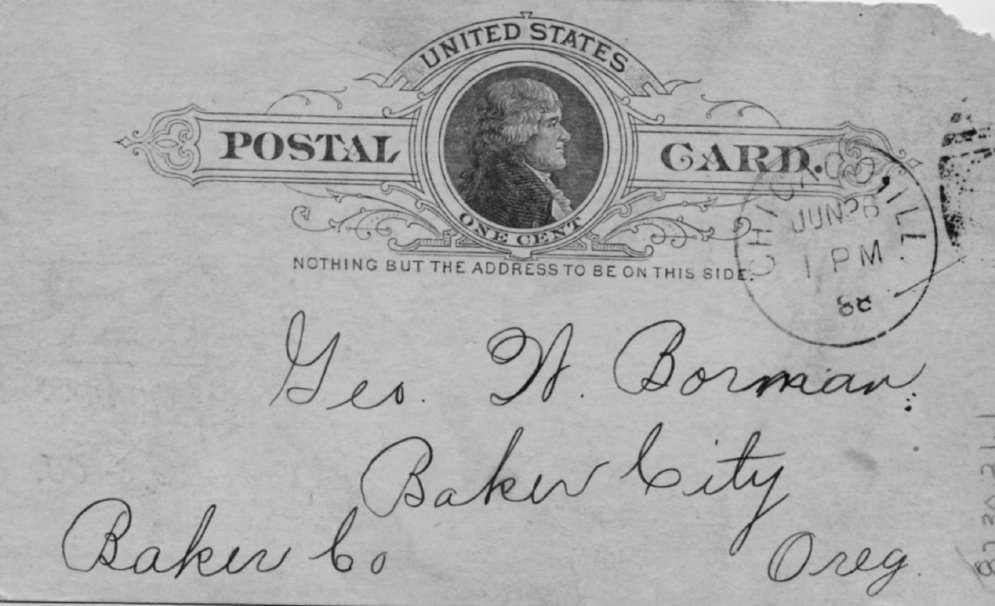 UNITED STATES
POSTAL CARD.
ONE CENT
NOTHING BUT THE ADDRESS TO BE ON THIS SIDE.
CHICAGO, ILL.
JUN 26
1 PM
88
Geo. W. Borman
Baker City
Baker Co
Oreg.